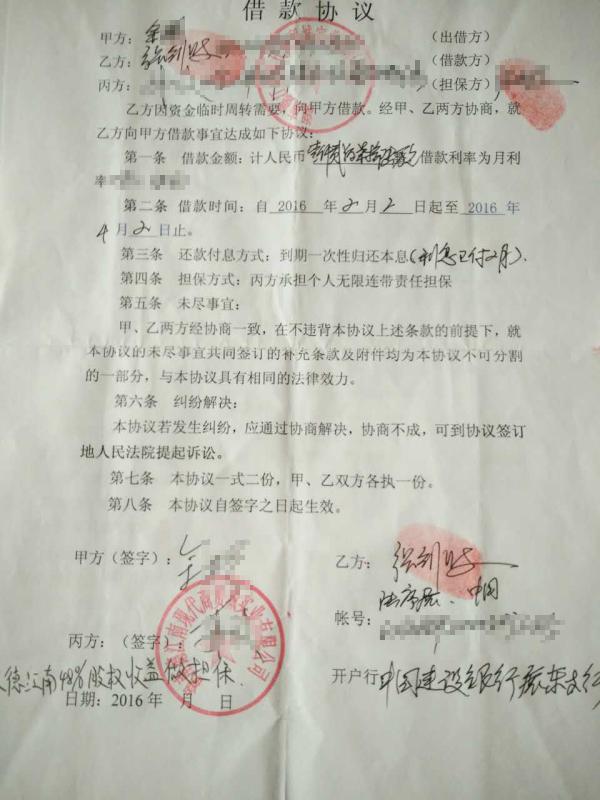 借款协议
甲方： （出借方）
乙方： （借款方）
丙方： （担保方）
乙方因资金临时周转需要，向甲方借款。经甲、乙两方协商，就
乙方向甲方借款事宜达成如下协议：
第一条 借款金额：计人民币 借款利率为月利
率
第二条 借款时间：自 2016 年2月2日起至 2016 年
4月2日止。
第三条 还款付息方式：到期一次性归还本息（利息已付2月）.
第四条 担保方式：丙方承担个人无限连带责任担保
第五条 未尽事宜：
甲、乙两方经协商一致，在不违背本协议上述条款的前提下，就
本协议的未尽事宜共同签订的补充条款及附件均为本协议不可分割
的一部分，与本协议具有相同的法律效力。
第六条 纠纷解决：
本协议若发生纠纷，应通过协商解决，协商不成，可到协议签订
地人民法院提起诉讼。
第七条 本协议一式二份，甲、乙双方各执一份。
第八条 本协议自签字之日起生效。
甲方（签字）： 乙方：
帐号：
丙方：（签字）：
德江南48%股权收益做担保. 开户行 中国建设银行振东支行
日期：2016 年 月 日